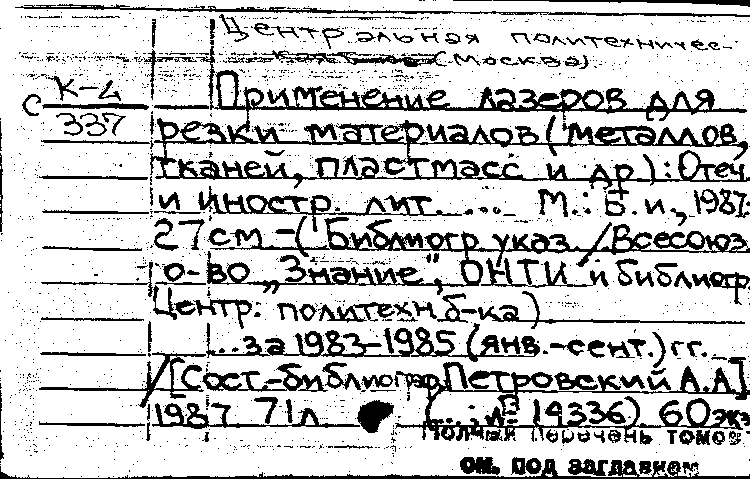 Центральная политехничес-
(Москва).
К-4
С
337
Применение лазеров для
резки материалов (металлов,
тканей, пластмасс и др): Отеч
и иностр. лит. .... М.: Б.и., 1987.
27см -(Библиогр. указ. /Всесоюз
о-во „Знание", ОНТИ и библиогр
Центр. политехн. б-ка).
...за 1983-1985 (янв.-сент.) гг.
/[Сост.-библиограф Петровский А.А]
1987 71л. (...; № 14336) 60экз
Полный перечень томов
см. под заглавием